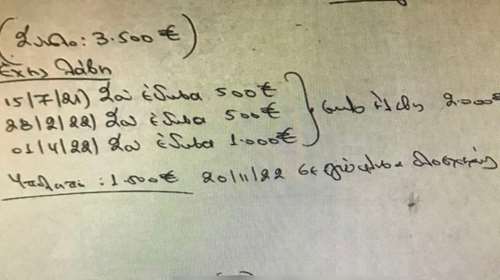 (Σύνολο: 3.500€)
Έχεις λάβει
15/7/21) Σου έδωσα 500€
28/2/22) Σου έδωσα 500€
01/4/22) Σου έδωσα 1.000€
έλαβες 2.000€
Υπόλοιπο: 1.500€ 20/11/22 σε